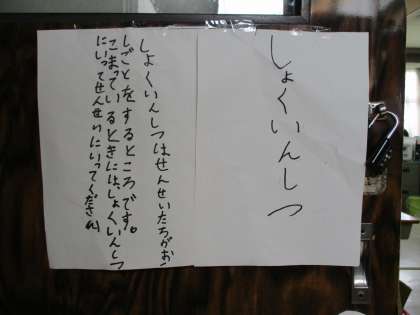 しょくいんしつ
しょくいんしつはせんせいたちがお
しごとをするところです。
こまっているときには、しょくいんしつ
にいってせんせいにいってください